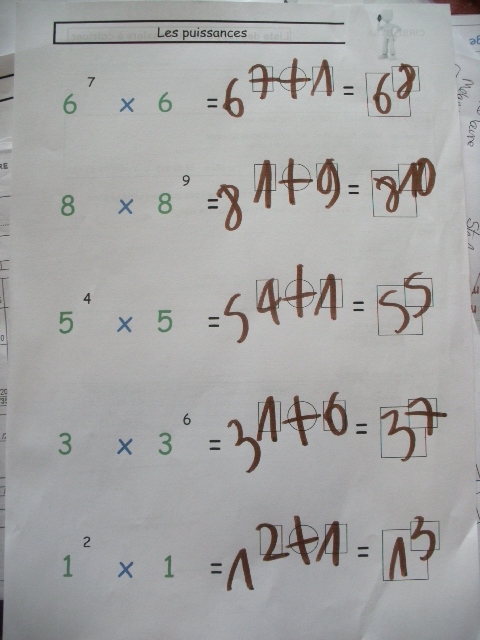 Les puissances
6⁷ x 6 = 6⁷⁺¹ = 6⁸
8 x 8⁹ = 8¹⁺⁹ = 8¹⁰
5⁴ x 5 = 5⁴⁺¹ = 5⁵
3 x 3⁶ = 3¹⁺⁶ = 3⁷
1² x 1 = 1²⁺¹ = 1³